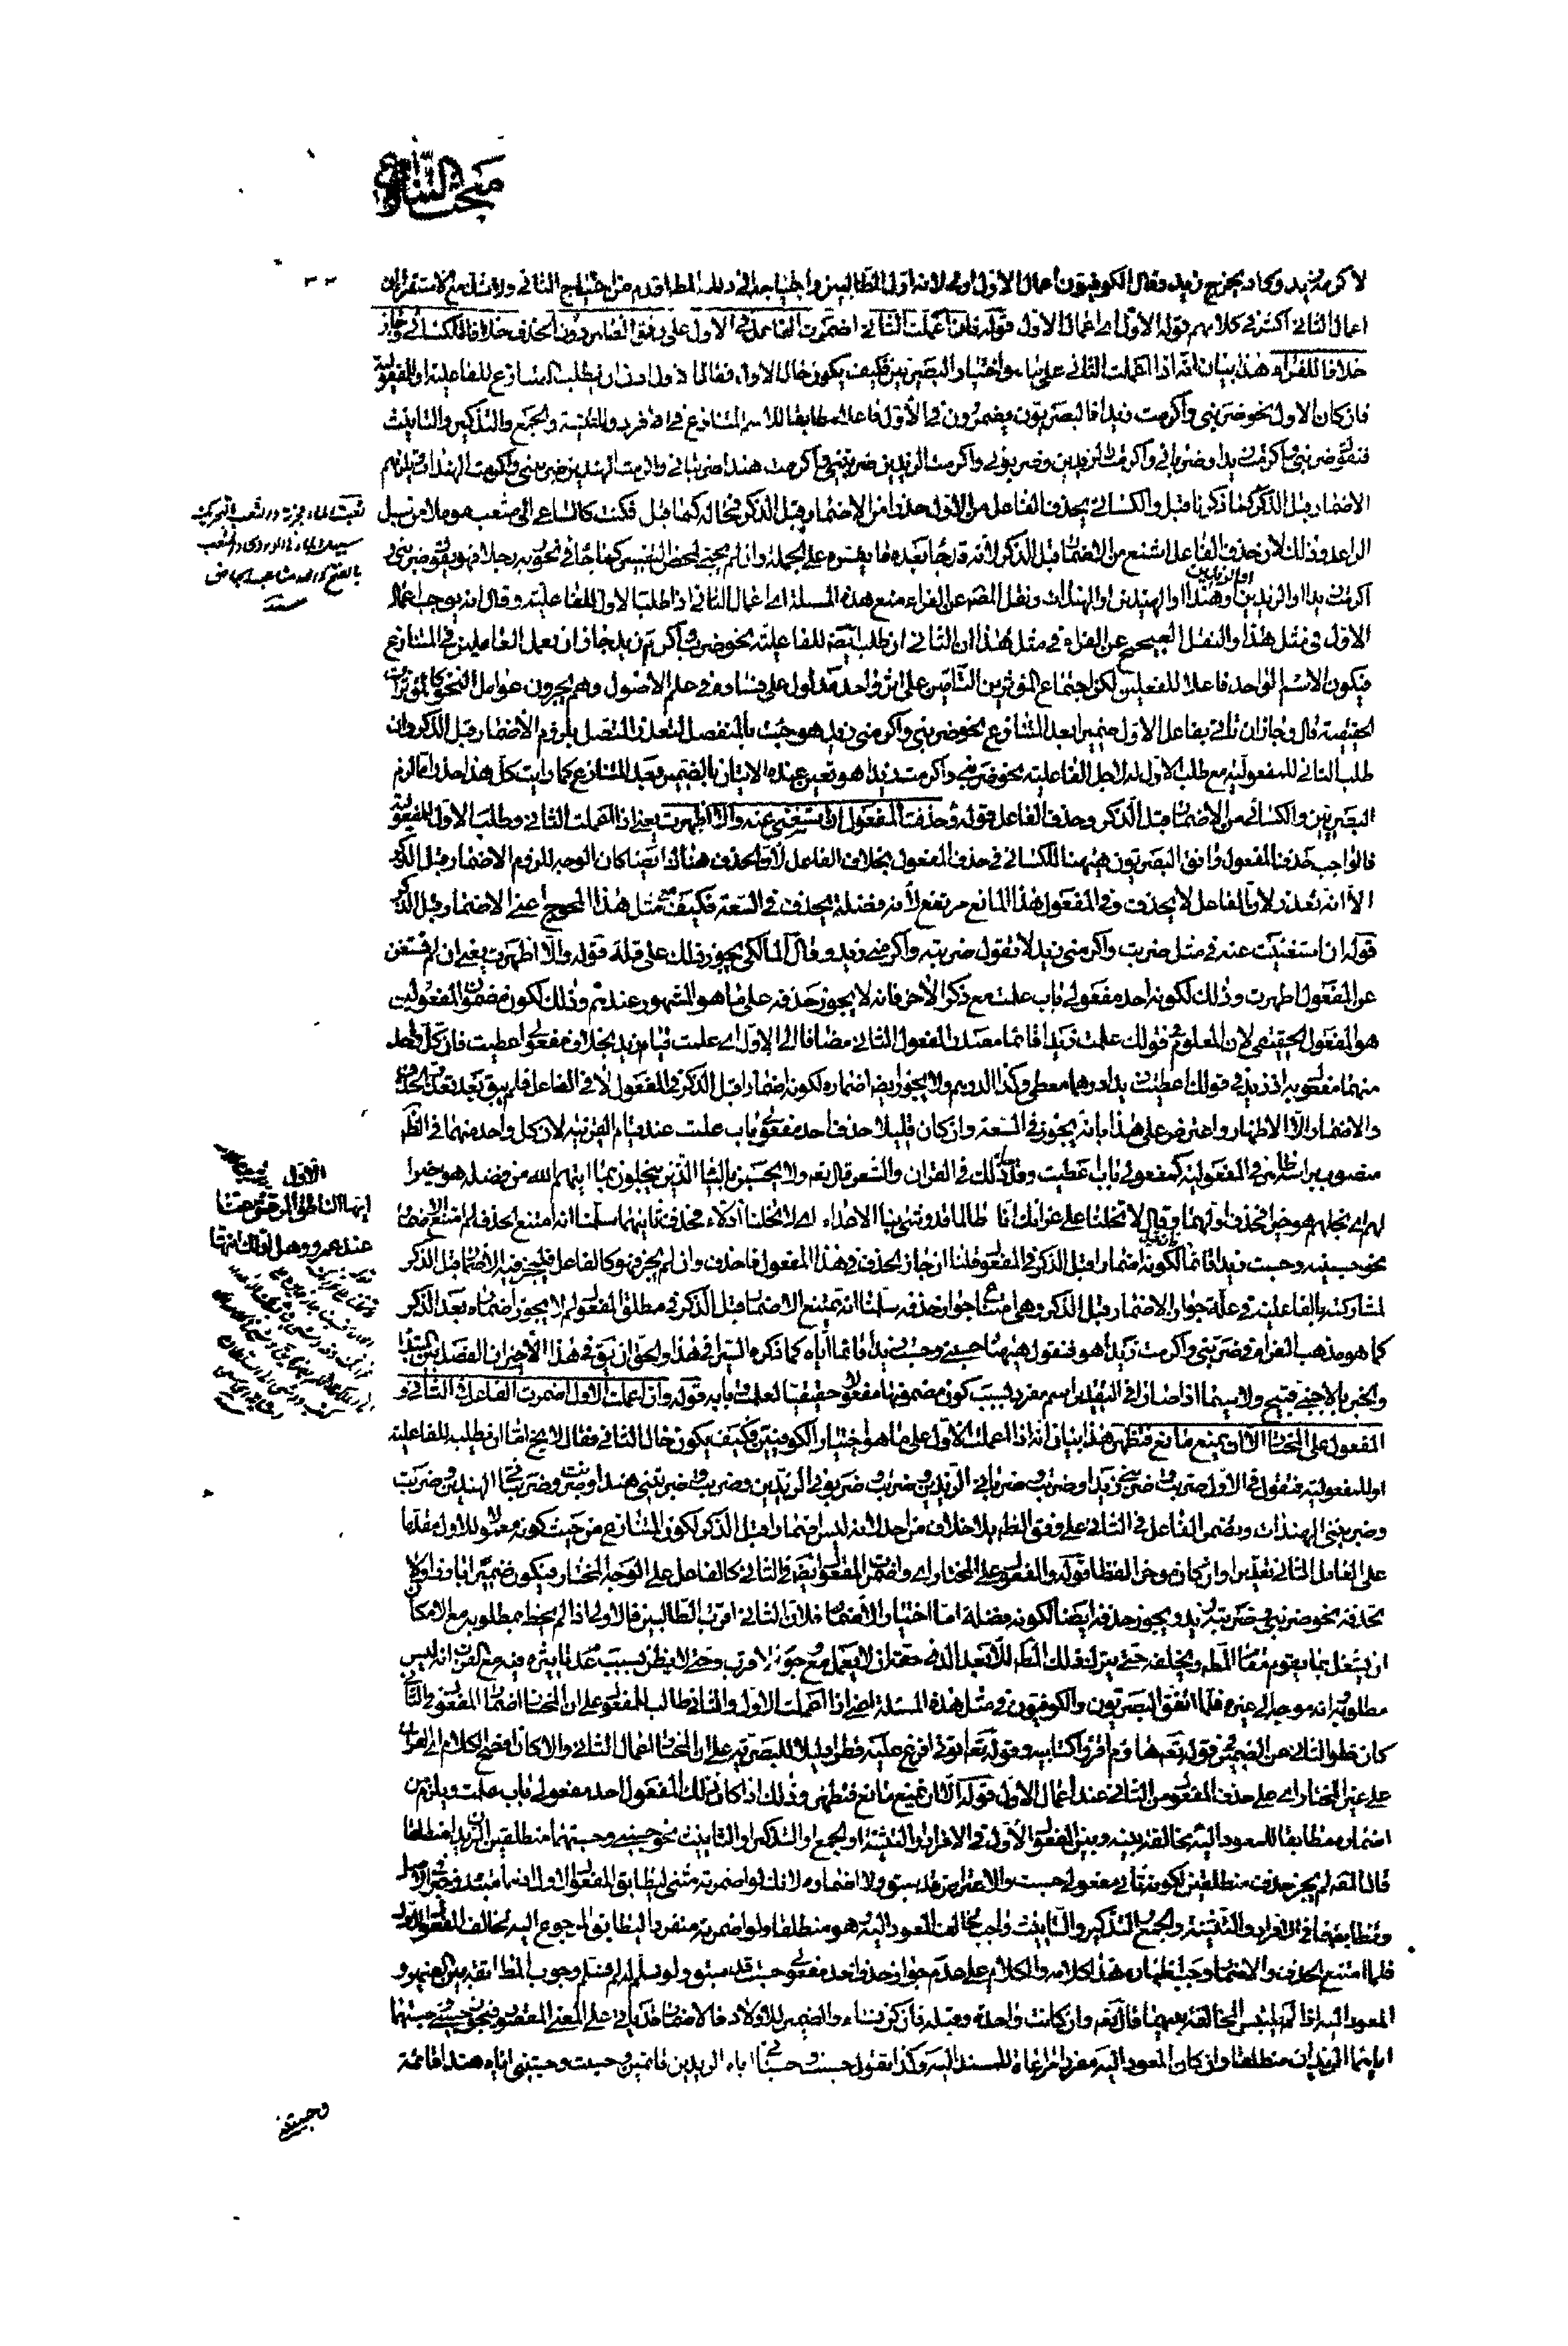 مبحث التنازع
لاكرم زيد وكاد يخرج زيد فقال الكوفيون اعمال الاول اولى لانه اول الطالبين واحتياجه الى ذلك المط اقدم من احتياج الثاني ولا شك مع الاستقراء ان
اعمال الثاني اكثر في كلامهم قوله الاول اى اعمال الاول قوله فان اعملت الثاني اضمرت الفاعل في الاول على وفق الظاهر دون الحذف خلافا للكسائي وجاز
خلافا للفراء هذا بيان انه اذا اعملت الثاني على ما هو اختيار البصريين فكيف يكون حال الاول فقال الاول اما ان يطلب المتنازع للفاعلية او للمفعولية
فان كان الاول نحو ضربني واكرمت زيدا فالبصريون يضمرون في الاول فاعله مطابقا للاسم المتنازع في الافراد والتثنية والجمع والتذكير والتانيث
فتقول ضربني واكرمت زيدا وضرباني واكرمت الزيدين وضربوني واكرمت الزيدين ضربتني واكرمت هندا ضربتاني واكرمت الهندين ضربنني واكرمت الهندات فيلزم
الاضمار قبل الذكر كما ذكرنا قبل والكسائي يحذف الفاعل من الاول حذرا من الاضمار قبل الذكر فحاله كما قيل فكنت كالساعي الى مثعب موئلا من سبل
الراعد وذلك لان حذف الفاعل اشنع من الاضمار قبل الذكر لانه قد جاء بعده ما يفسره على الجملة وان لم يجئ لمحض التفسير كما جاء في نحو ربه رجلا فهو يقول ضربني و
اكرمت زيدا او الزيدين او الزيدين او هندا او الهندين او الهندات ونقل المص عن الفراء منع هذه المسئلة اى اعمال الثاني اذا طلب الاول للفاعلية وقال انه يوجب اعمال
الاول في مثل هذا والنقل الصحيح عن الفراء في مثل هذا ان الثاني ان طلب ايضا للفاعلية نحو ضرب واكرم زيد جاز ان تعمل العاملين في المتنازع
فيكون الاسم الواحد فاعلا للفعلين لكن اجتماع المؤثرين التامين على اثر واحد مدلول على فساده في علم الاصول وهم يجرون عوامل النحو كالمؤثرات
الحقيقية قال وجاز ان تاتي بفاعل الاول ضميرا بعد المتنازع نحو ضربني واكرمني زيد هو جئت بالمنفصل لتعذر المتصل بلزوم الاضمار قبل الذكر وان
طلب الثاني للمفعولية مع طلب الاول له لاجل الفاعلية نحو ضربني واكرمت زيدا هو تعين عنده الاتيان بالضمير بعد المتنازع كما رايت كل هذا حذرا مما لزم
البصريين والكسائي من الاضمار قبل الذكر وحذف الفاعل قوله وحذفت المفعول ان استغني عنه والا اظهرت يعني ان اعملت الثاني وطلب الاول للمفعولية
فالواجب حذف المفعول وافق البصريون ههنا للكسائي في حذف المفعول بخلاف الفاعل لان الحذف هناك ايضا كان الوجه للزوم الاضمار قبل الذكر
الا انه تعذر لان الفاعل لا يحذف وفي المفعول هذا المانع مرتفع لانه فضلة يحذف في السعة فكيف مع مثل هذا المحوج اعني الاضمار قبل الذكر
قوله ان استغنيت عنه في مثل ضربت واكرمني زيد لا تقول ضربته واكرمني زيد وقال المالكي يجوز ذلك على قلة قوله والا اظهرت يعني ان لم تستغن
عن المفعول اظهرت وذلك لكونه احد مفعولي باب علمت مع ذكر الآخر فانه لا يجوز حذفه على ما هو المشهور عندهم وذلك لكون مضمون المفعولين
هو المفعول الحقيقي لان المعلوم في قولك علمت زيدا قائما مصدر المفعول الثاني مضافا الى الاول اى علمت قيام زيد بخلاف مفعولي اعطيت فان كل واحد
منهما مفعول به اذ زيد في قولك اعطيت زيدا درهما معطى وكذا الدرهم ولا يجوز ايضا اضماره لكونه اضمارا قبل الذكر في المفعول لا في الفاعل فلم يبق بعد تعذر الحذف
والاضمار الا الاظهار واعترض على هذا بانه يجوز في السعة وان كان قليلا حذف احد مفعولي باب علمت عند قيام القرينة لان كل واحد منهما في الظ
منصوب براسه ظ في المفعولية كمفعولي باب اعطيت وقد جاء ذلك في القرآن والشعر قال تعالى ولا يحسبن بالياء الذين يبخلون بما آتيهم الله من فضله هو خيرا
لهم اى بخلهم هو خيرا فحذف اولهما وقال لا تخلنا على غراتك انا طالما قد وشى بنا الاعداء اى لا تخلنا اذلاء فحذف ثانيهما سلمنا انه امتنع الحذف لم امتنع الاضمار
نحو حسبنيه وحسبت زيدا قائما لكونه اضمارا قبل الذكر في المفعول قلنا ان جاز الحذف في هذا المفعول فاحذف وان لم يجز فهو كالفاعل فليجز فيه الاضمار قبل الذكر
لمشاركته الفاعلية في علة جواز الاضمار قبل الذكر وهي امتناع جواز حذفه سلمنا انه يمتنع الاضمار قبل الذكر في مطلق المفعول لم لا يجوز اضماره بعد الذكر
كما هو مذهب الفراء في ضربني واكرمت زيدا هو فنقول ههنا حسبني وحسبت زيدا قائما اياه كما ذكره السيرافي هذا والحق ان يق في هذا الاخير ان الفصل بين المبتدا
والخبر بالاجنبي قبيح ولا سيما اذا صارا في التقدير اسم مفرد بسبب كون مضمونهما مفعولا حقيقيا لعلمت وبابه قوله وان اعملت الاول اضمرت الفاعل في الثاني و
المفعول على المختار الا ان يمنع مانع فتظهر هذا بيان انه اذا اعملت الاول على ما هو اختيار الكوفيين فكيف يكون حال الثاني فقال لا يخ اما ان يطلبه للفاعلية
او للمفعولية فتقول في الاول ضربت وضربني زيدا وضربت وضرباني الزيدين وضربت وضربوني الزيدين وضربت وضربتني هندا وضربت وضربتاني الهندين وضربت
وضربنني الهندات وتضمر الفاعل في الثاني على وفق الظ بلا خلاف من احد لانه ليس اضمارا قبل الذكر لكون المتنازع من حيث كونه معمولا للاول مقدما
على العامل الثاني تقديرا وان كان مؤخرا لفظا قوله والمفعول على المختار اى واضمرت المفعول ايضا في الثاني كالفاعل على الوجه المختار فيكون ضميرا بارزا ولا
تحذفه نحو ضربني وضربته زيد ويجوز حذفه ايضا لكونه فضلة اما اختيار الاضمار فلان الثاني اقرب الطالبين فالاولى اذا لم يحظ بمطلوبه مع الامكان
ان يشغل بما يقوم مقام المط ويخلفه حتى يترك ذلك المط للابعد الذي حقه ان لا يعمل مع وجود الاقرب وحتى لا يظن بسبب عدم تاثيره فيه مع القرب انه ليس
مطلوبه وانه موجه الى غيره فلما اتفق البصريون والكوفيون في مثل هذه المسئلة اعني اذا اعملت الاول والثاني طالب للمفعول على ان المختار اضمار المفعول في الثاني
كان خلو الثاني عن الضمير في قوله تعالى هاؤم اقرؤا كتابيه وقوله تعالى آتوني افرغ عليه قطرا دليلا للبصرية على ان المختار اعمال الثاني والا كان افصح الكلام اى القرآن
على غير المختار اى على حذف المفعول من الثاني عند اعمال الاول قوله الا ان يمنع مانع فتظهر وذلك اذا كان ذلك المفعول احد مفعولي باب علمت ويلزم من
اضماره مطابقا للمعود اليه مخالفة بينه وبين المفعول الاول في الافراد والتثنية والجمع او التذكير والتانيث نحو حسبني وحسبتهما منطلقين الزيدان منطلقا
قال المص لم يجز حذف منطلقين لكونه ثاني مفعولي حسبت والاعتراض قد سبق ولا اضماره لانك لو اضمرته مثنى ليطابق المفعول الاول اذ هما مبتدا وخبر في الاصل
وتطابقهما في الافراد والتثنية والجمع والتذكير والتانيث واجب لخالف المعود اليه وهو منطلقا ولو اضمرته مفردا ليطابق المرجوع اليه لخالف المفعول الاول
فلما امتنع الحذف والاضمار وجب اظهاره هذا كلامه والكلام على عدم جواز حذف احد مفعولي حسبت قد سبق ولو سلم لم نسلم وجوب المطابقة بين الضمير و
المعود اليه اذا لم يلتبس المخالفة بينهما قال تعالى وان كانت واحدة وقبله فان كن نساء والضمير للاولاد فالاضمار قد ياتي على المعنى المقصود فيجوز حسبني وحسبتهما
اياهما الزيدان منطلقا وان كان المعود اليه مفردا مراعاة للمسند اليه وكذا تقول حسبت وحسباني اياه الزيدين قائمين وحسبت وحسبتني اياه هندا قائمة
وحسبتني